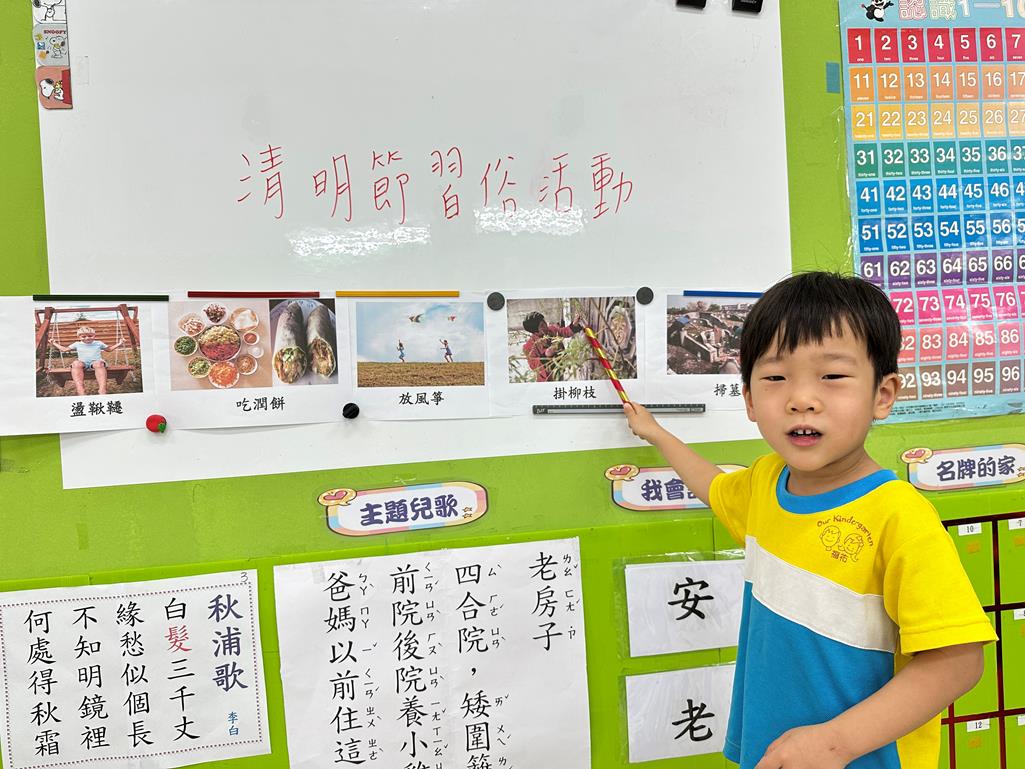 清明節習俗活動
盪鞦韆
吃潤餅
放風箏
掛柳枝
掃墓
認識1－10
1 2 3 4 5 6 7
one two three four five six seven
11 12 13 14 15 16 17
21 22 23 24 25 26 27
31 32 33 34 35 36 3
41 42 43 44 45 46 4
51 52 53 54 55 56 5
61 62 63 64 65 66 6
72 73 74 75 76
82 83 84 85 86
92 93 94 95 96
主題兒歌
我會
名牌的家
Our Kindergarten
3
秋浦歌
李白
白髮三千丈
緣愁似個長
不知明鏡裡
何處得秋霜
老房子
四合院，矮圍籬
前院後院養小
爸媽以前住這
安
老
10
12
SNOOPY